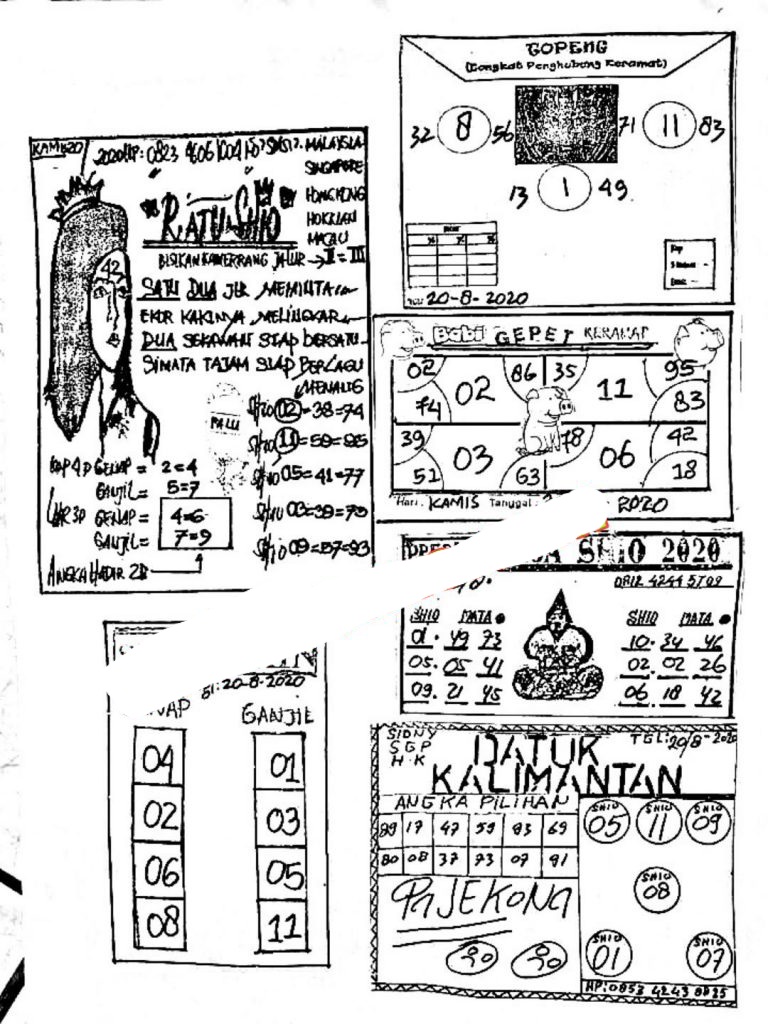 TOPENG
(Tongkat Penghubung Keramat)
32 8 56
71 11 83
13 1 49
20-8-2020
KAMIS 20
2020 HP: 0823 4606 1004
MALAYSIA
SINGAPORE
HONGKONG
HOKKIAN
MACAU
"RATU SHIO"
42
SATU DUA JLR MEMINTA
EKOR KAKINYA MELINGKAR
DUA SEKAWAN SIAP BERSATU
SIMATA TAJAM SIAP BERLAGU
MENANG
PALU
SHIO 02 = 38 = 74
SHIO 11 = 59 = 95
SHIO 05 = 41 = 77
SHIO 03 = 39 = 75
SHIO 09 = 57 = 93
KOP 4D GENAP = 2=4
GANJIL = 5=7
GENAP = 4=6
GANJIL = 7=9
ANGKA HADIR 2D
Babi GEPET KERAMAT
02 02 86 35 11 95
74 83
39 03 78 06 42
51 63 18
Hari: KAMIS Tanggal: 2020
SHIO 2020
SHIO MATA
01. 49 73
05. 05 41
09. 21 45
SHIO MATA
10. 34 46
02. 02 26
06 18 42
20-8-2020
GANJIL
04 01
02 03
06 05
08 11
SIDNY
SGP
H.K
DATUK
KALIMANTAN
TGL: 20/8-2020
ANGKA PILIHAN
89 17 47 59 83 69
80 08 37 73 07 91
PAJEKONG
SHIO 05
SHIO 11
SHIO 09
SHIO 08
SHIO 01
SHIO 07
HP: 0853 4243 8825